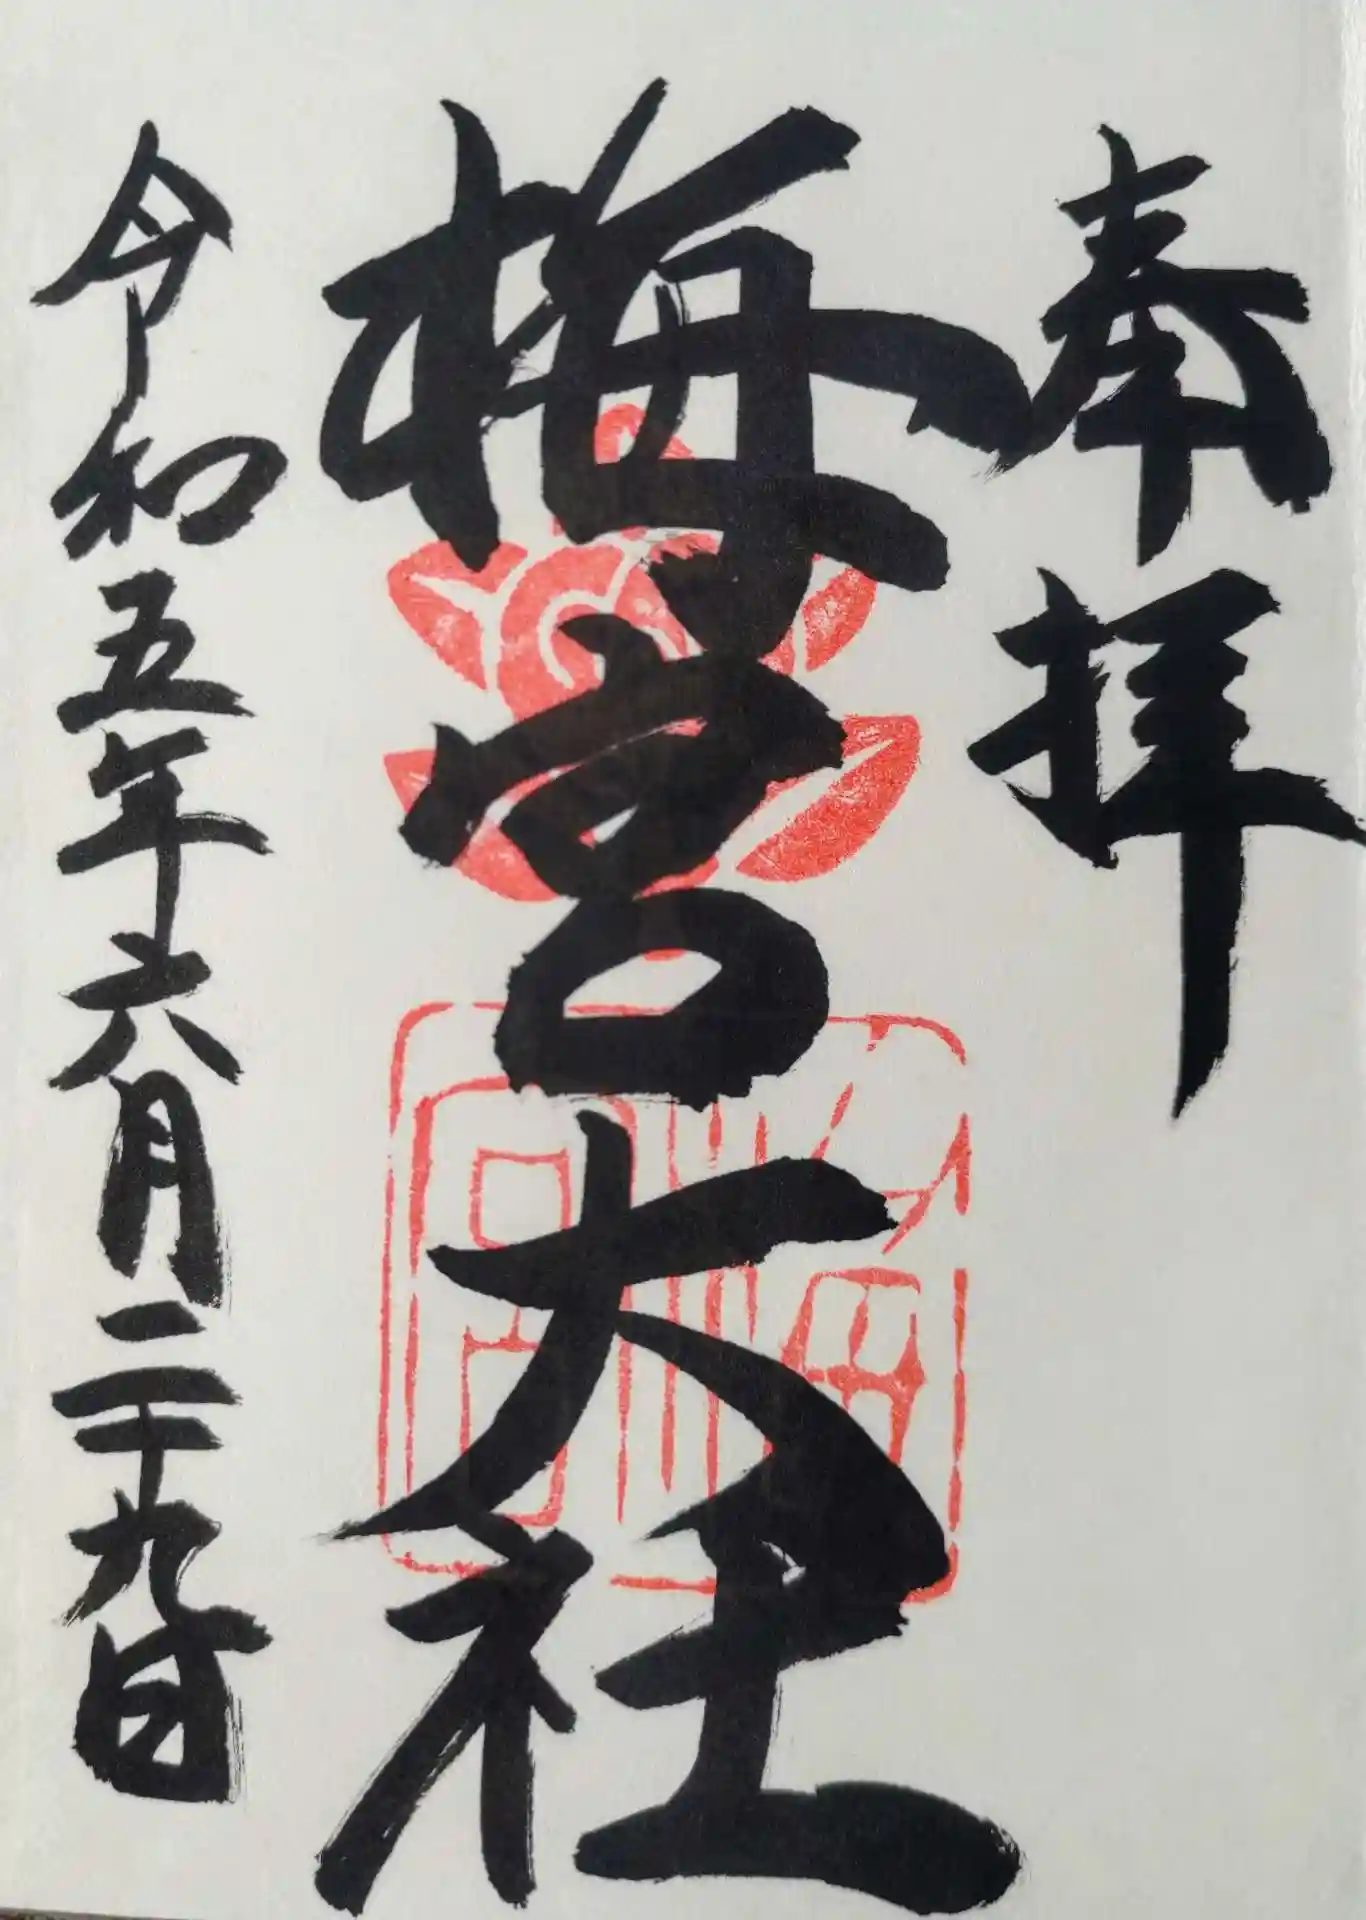 奉拝
梅宮大社
令和五年六月二十九日